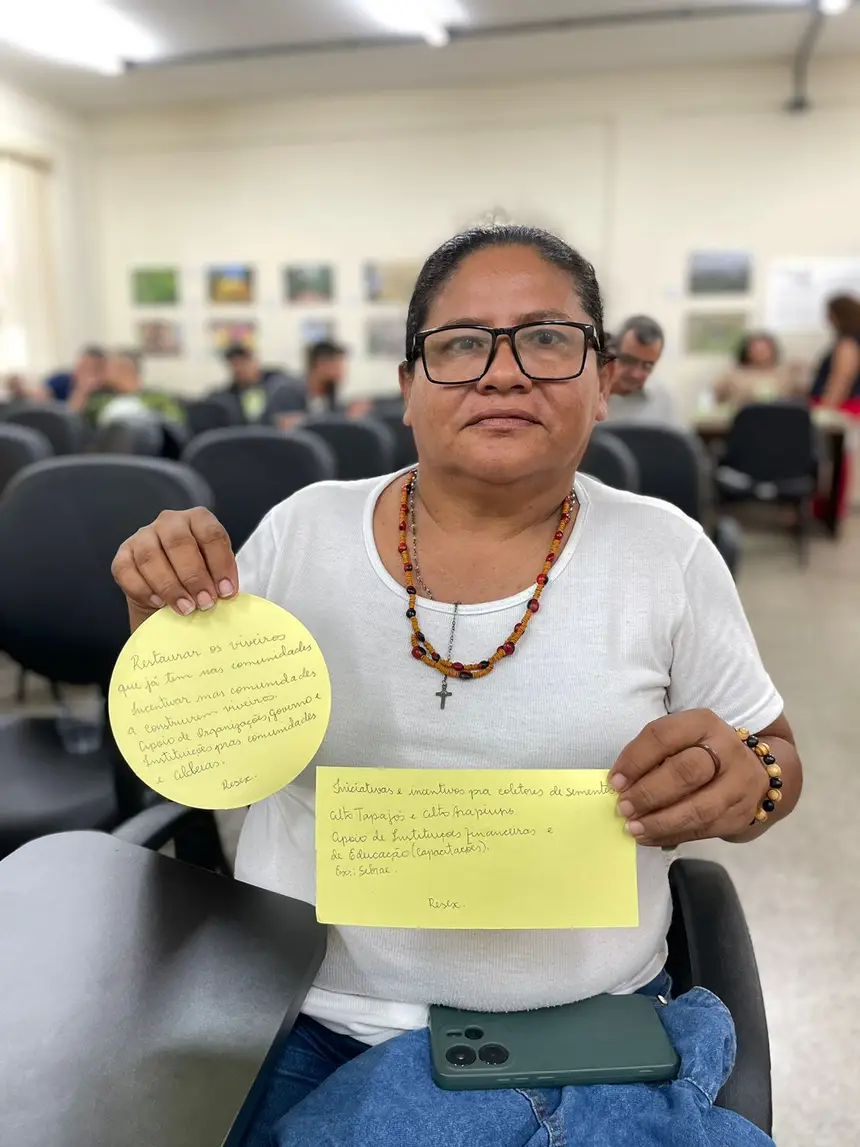 Restaurar os viveiros
que já tem nas comunidades
Incentivar mas comunidades
a construirem viveiros.
Apoio de Organizações, governo e
Instituições pras comunidades
e Aldeias.
Resex.
Iniciativas e incentivos pra coletores de sementes
Alto Tapajós e Alto Arapiuns
Apoio de Instituições financeiras e
de Educação (capacitações).
Ex: Sebrae.
Resex.